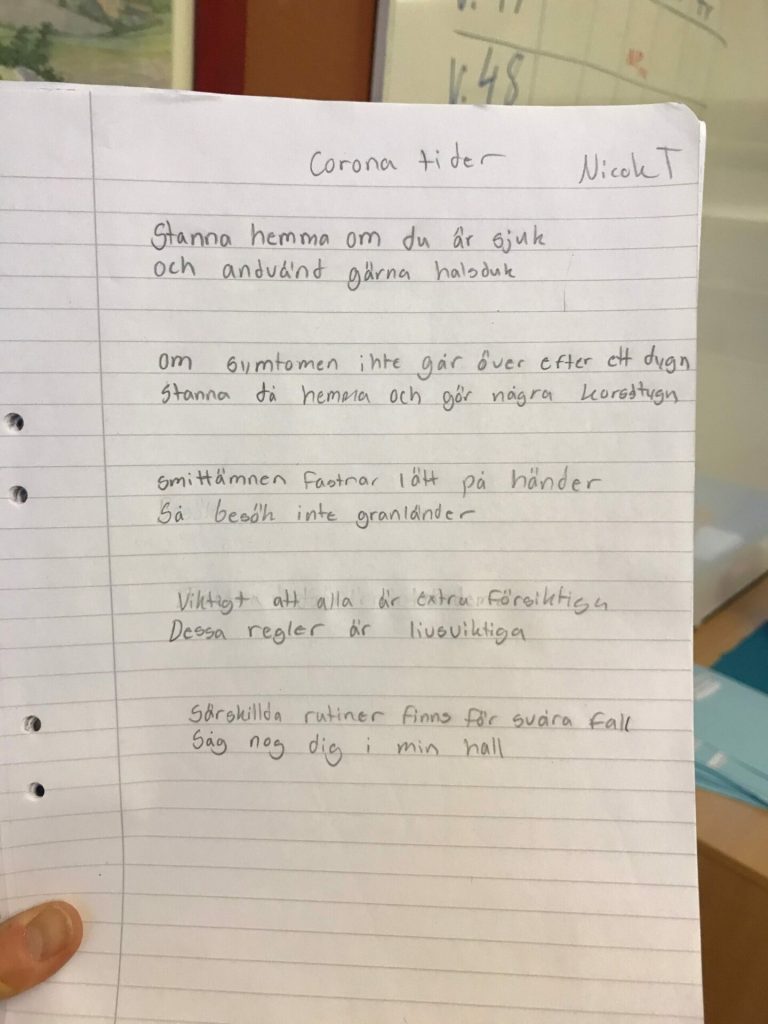 V. 48
Corona tider
Nicole T
Stanna hemma om du är sjuk
och andvänd gärna halsduk
om symtomen inte går över efter ett dygn
Stanna då hemma och gör några korsstygn
smittämnen fastnar lätt på händer
Så besök inte granländer
Viktigt att alla är extra försiktiga
Dessa regler är livsviktiga
Särskillda rutiner finns för svåra fall
Såg nog dig i min hall